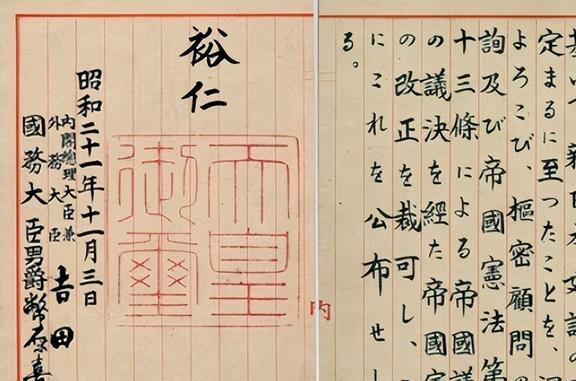 定まるに至つたことを、
よろこび、樞密顧問の
詢及び帝國憲法第
十三條による帝國議
の議決を経た帝國
の改正を裁可し、
にこれを公布せし
る。
内
裕仁
天皇
御璽
昭和二十一年十一月三日
内閣總理大臣兼
外務大臣
吉田
國務大臣男爵幣原喜